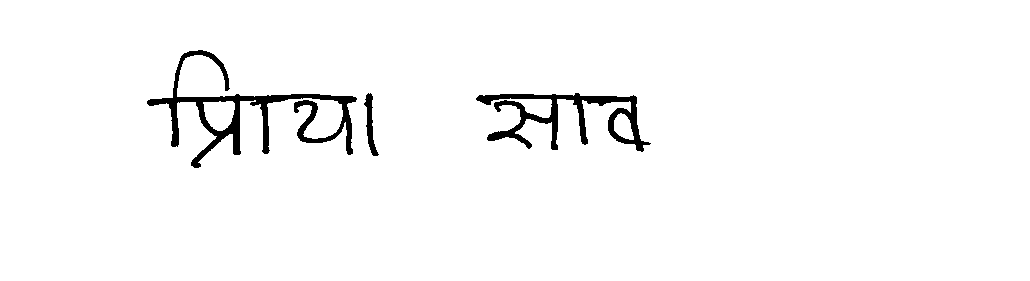 प्रिाया साव